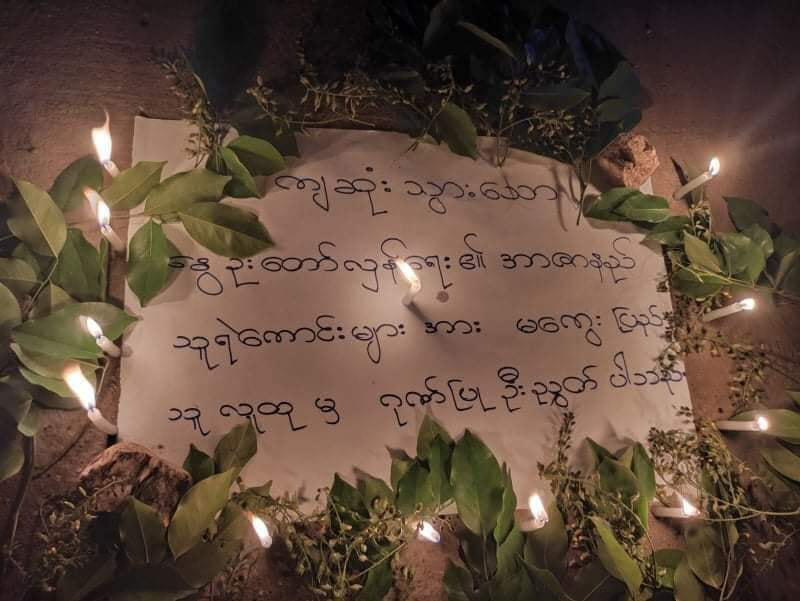 ကျဆုံး သွားသော
နွေဦးတော်လှန်ရေး၏ အာဇာနည်
သူရဲကောင်းများ အား မကွေး ပြည်
သူလူထု မှ ဂုဏ်ပြု ဦးညွှတ် ပါသည်